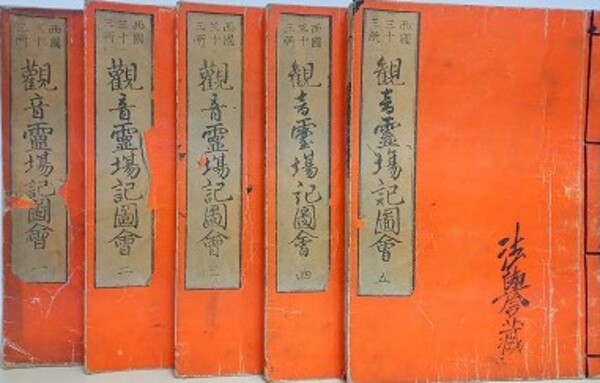 西國
三十
三所
觀音靈場記圖會 一
西國
三十
三所
觀音靈場記圖會 二
西國
三十
三所
觀音靈場記圖會 三
西國
三十
三所
観音霊場記圖會 四
西國
三十
三所
観音霊場記圖會 五
法譽藏